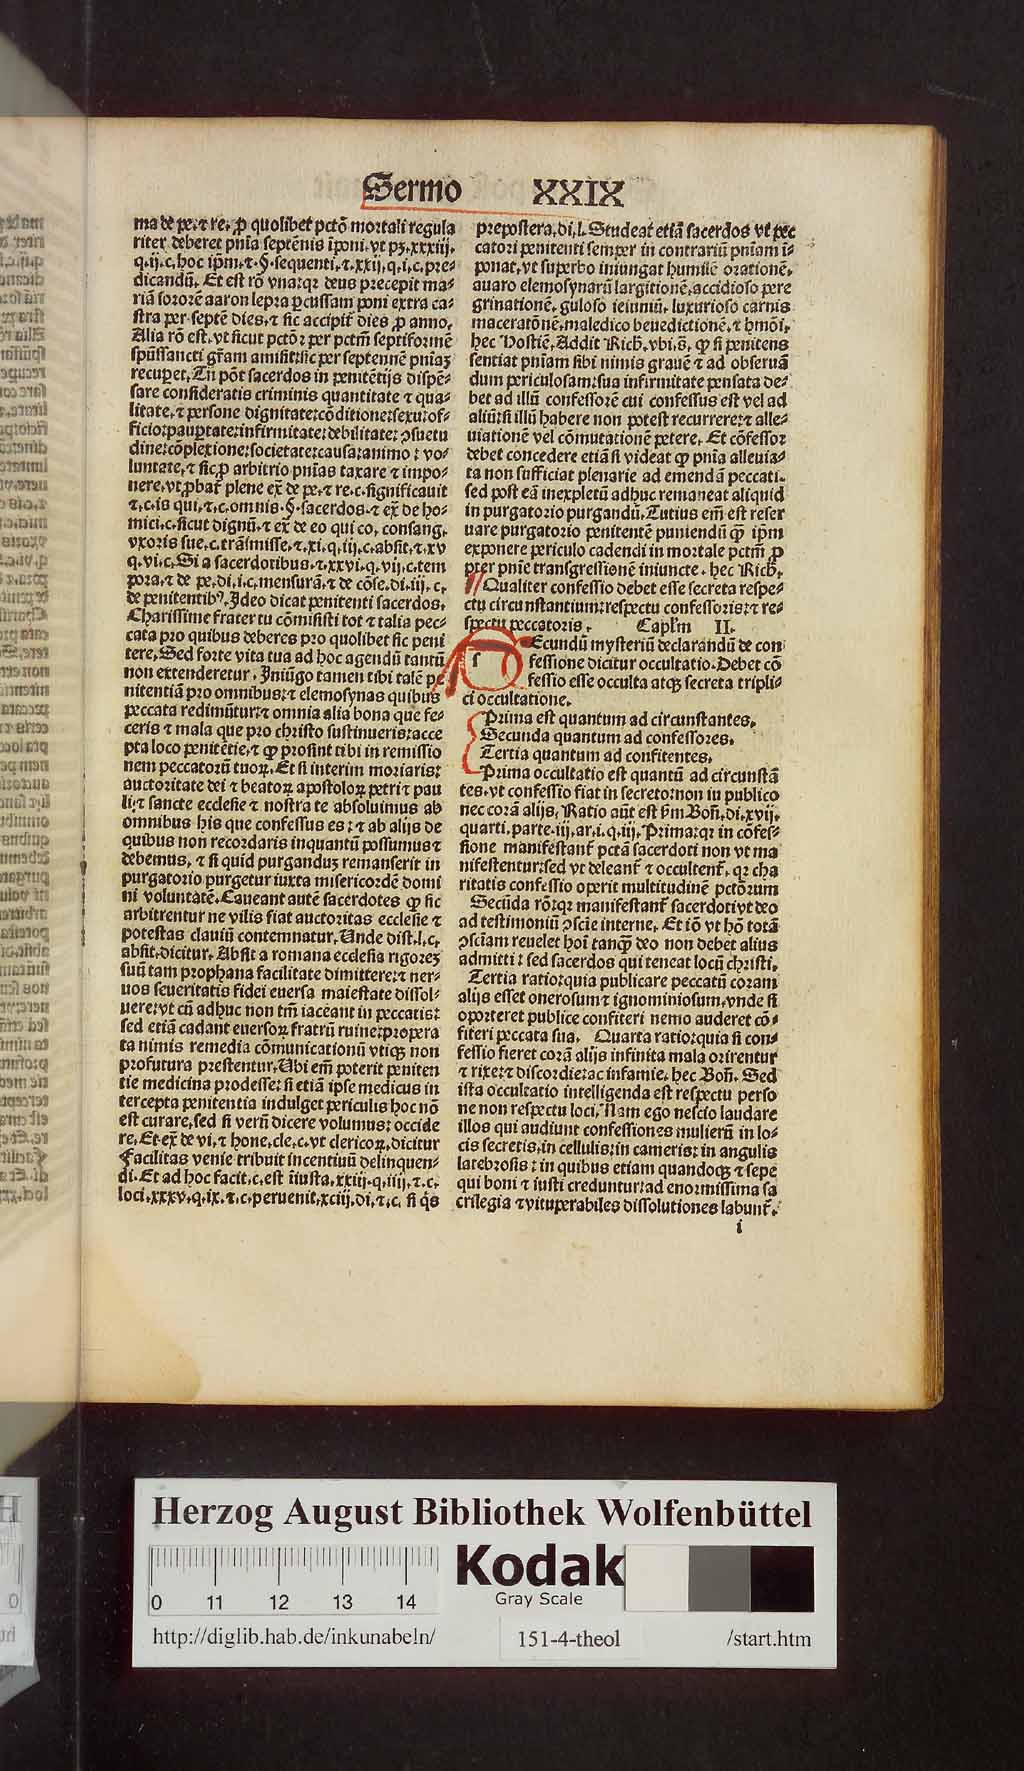 Sermo XXIX
ma de pe. ⁊ re. ꝓ quolibet pctō mortali regula
riter deberet pnīa septēnis īponi. vt pꝫ. xxxiij.
q. ij. c. hoc ip̄m. ⁊ .§. sequenti. ⁊ .xxij. q. i. c. pre-
dicandū. Et est rō vna: qꝛ deus precepit ma-
riā sororē aaron lepra ꝑcussam poni extra ca-
stra per septē dies. ⁊ sic accipit̄ dies ꝓ anno.
Alia rō est. vt sicut pctōꝛ per pctm̄ septiformē
spūssancti gr̄am amisit: sic per septennē pnīaꝫ
recuꝑet. Tn̄ pōt sacerdos in penitētijs dispē-
sare consideratis criminis quantitate ⁊ qua-
litate. ⁊ persone dignitate: cōditione: sexu: of-
ficio: pauꝑtate: infirmitate: debilitate: ꝯsuetu
dine: cōplexione: societate: causa: animo: vo-
luntate. ⁊ sic ꝓ arbitrio pnīas taxare ⁊ impo-
nere. vt ꝓbat̄ plene ex̄ de pe. ⁊ re. c. significauit
⁊ .c. is qui. ⁊ .c. omnis. §. sacerdos. ⁊ ex̄ de ho-
mici. c. sicut dignū. ⁊ ex̄ de eo qui co. consang.
vxoris sue. c. trāsmisse. ⁊ .xi. q. iij. c. absit. ⁊ .xv
q. vi. c. Si a sacerdotibus. ⁊ .xxvi. q. vij. c. tem
pora. ⁊ de pe. di. i. c. mensurā. ⁊ de cōse. di. iij. c.
de penitentibꝰ. Ideo dicat penitenti sacerdos.
Charissime frater tu cōmisisti tot ⁊ talia pec-
cata pro quibus deberes pro quolibet sic peni
tere. Sed forte vita tua ad hoc agendū tantū
non extenderetur. Iniūgo tamen tibi talē pe
nitentiā pro omnibus: ⁊ elemosynas quibus
peccata redimūtur: ⁊ omnia alia bona que fe-
ceris ⁊ mala que pro christo sustinueris: acce
pta loco penitētie. ⁊ ꝙ prosint tibi in remissio
nem peccatorū tuoꝝ. Et si interim moriaris:
auctoritate dei ⁊ beatoꝝ apostoloꝝ petri ⁊ pau
li: ⁊ sancte ecclesie ⁊ nostra te absoluimus ab
omnibus his que confessus es: ⁊ ab alijs de
quibus non recordaris inquantū possumus ⁊
debemus. ⁊ si quid purganduꝫ remanserit in
purgatorio purgetur iuxta misericordē domi
ni voluntatē. Caueant autē sacerdotes ꝙ sic
arbitrentur ne vilis fiat auctoritas ecclesie ⁊
potestas clauiū contemnatur. Unde dist. l. c.
absit. dicitur. Absit a romana ecclesia rigoreꝫ
suū tam prophana facilitate dimittere: ⁊ ner-
uos seueritatis fidei euersa maiestate dissol-
uere: vt cū adhuc non tm̄ iaceant in peccatis:
sed etiā cadant euersoꝝ fratrū ruine: propera
ta nimis remedia cōmunicationū vtiqꝫ non
profutura prestentur. Ubi em̄ poterit peniten
tie medicina prodesse: si etiā ipse medicus in
tercepta penitentia indulget periculis hoc nō
est curare. sed si verū dicere volumus: occide
re. Et ex̄ de vi. ⁊ hone. cle. c. vt clericoꝝ. dicitur
Facilitas venie tribuit incentiuū delinquen-
di. Et ad hoc facit. c. est iusta. xxiij. q. iiij. ⁊ .c.
loci. xxxv. q. ix. ⁊ .c. peruenit. xciij. di. ⁊ .c. si q̇s
prepostera. di. l. Studeat etiā sacerdos vt pec
catori penitenti semper in contrariū pnīam ī-
ponat. vt superbo iniungat humilē orationē.
auaro elemosynarū largitionē. accidioso pere
grinationē. guloso ieiuniū. luxurioso carnis
maceratōnē. maledico benedictionē. ⁊ hmōi.
hec Hostiē. Addit Rich̄. vbi. s̄. ꝙ si penitens
sentiat pnīam sibi nimis grauē ⁊ ad obseruā
dum periculosam: sua infirmitate pensata de-
bet ad illū confessorē cui confessus est vel ad
aliū: si illū habere non potest recurrere: ⁊ alle-
uiationē vel cōmutationē petere. Et cōfessor
debet concedere etiā si videat ꝙ pnīa alleuia-
ta non sufficiat plenarie ad emendā peccati.
sed post eā inexpletū adhuc remaneat aliquid
in purgatorio purgandū. Tutius em̄ est reser
uare purgatorio penitentē puniendū ꝙ̄ ip̄m
exponere periculo cadendi in mortale pctm̄ ꝓ
pter pnīe transgressionē iniuncte. hec Rich̄.
Qualiter confessio debet esse secreta respe-
ctu circunstantium: respectu confessoris: ⁊ re-
spectu peccatoris. Capl̄m II.
sEcundū mysteriū declarandū de con
fessione dicitur occultatio. Debet cō
fessio esse occulta atqꝫ secreta tripli-
ci occultatione.
Prima est quantum ad circunstantes.
Secunda quantum ad confessores.
Tertia quantum ad confitentes.
Prima occultatio est quantū ad circunstā
tes. vt confessio fiat in secreto: non in publico
nec corā alijs. Ratio aūt est s̄m Boñ. di. xvij.
quarti. parte. iij. ar. i. q. iij. Prima: qꝛ in cōfes-
sione manifestant̄ pctā sacerdoti non vt ma
nifestentur: sed vt deleant̄ ⁊ occultent̄. qꝛ cha
ritatis confessio operit multitudinē pctōrum
Secūda rō: qꝛ manifestant̄ sacerdoti vt deo
ad testimoniū ꝯscīe interne. Et iō vt hō totā
ꝯscīam reuelet hoī tanꝙ̄ deo non debet alius
admitti: sed sacerdos qui teneat locū christi.
Tertia ratio: quia publicare peccatū coram
alijs esset onerosum ⁊ ignominiosum. vnde si
oporteret publice confiteri nemo auderet cō-
fiteri peccata sua. Quarta ratio: quia si con-
fessio fieret corā alijs infinita mala orirentur
⁊ rixe: ⁊ discordie: ac infamie. hec Boñ. Sed
ista occultatio intelligenda est respectu perso
ne non respectu loci. Nam ego nescio laudare
illos qui audiunt confessiones mulierū in lo-
cis secretis. in cellulis: in cameris: in angulis
latebrosis: in quibus etiam quandoqꝫ ⁊ sepe
qui boni ⁊ iusti creduntur: ad enormissima sa
crilegia ⁊ vituperabiles dissolutiones labunt̄.
i
Herzog August Bibliothek Wolfenbüttel
0 11 12 13 14
Kodak
Gray Scale
http://diglib.hab.de/inkunabeln/ 151-4-theol /start.htm